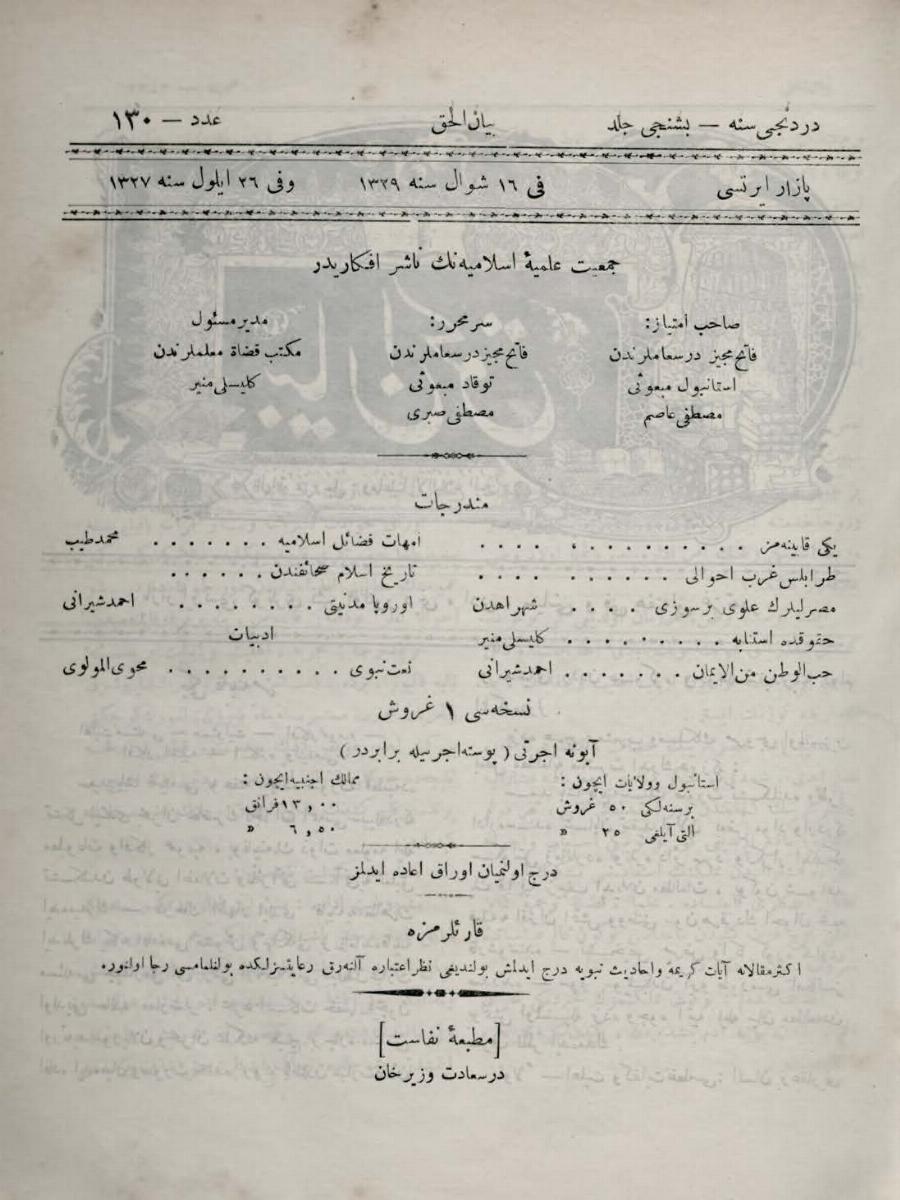 دردنجی سنه — بشنجی جلد بیان الحق عدد — ۱۳۰
پازار ایرتسی فی ۱٦ شوال سنه ۱۳۲۹ وفی ۲٦ ایلول سنه ۱۳۲۷
جمعیت علمیهٔ اسلامیه‌نك ناشر افکاریدر
صاحب امتیاز:
فاتح مجیز درسعاملرندن
استانبول مبعوثی
مصطفی عاصم
سرمحرر:
فاتح مجیز درسعاملرندن
توقاد مبعوثی
مصطفی صبری
مدیر مسئول
مکتب قضاة معلملرندن
کلیسلی منیر
مندرجات
یکی قابینه‌مز . . . . . . . . . . . . . .
طرابلس غرب احوالی . . . . . . . . . .
مصرلیلرك علوی برسوزی . . . . شهراهدن
حقوقده استنابه . . . . . . . . . کلیسلی منیر
حب الوطن من الایمان . . . . . . . احمد شیرانی
امهات فضائل اسلامیه . . . . . . . محمد طیب
تاریخ اسلام صحائفندن . . . . . .
اوروپا مدنیتی . . . . . . . . احمد شیرانی
ادبیات
نعت نبوی . . . . . . . . . . محوی المولوی
نسخه‌سی ۱ غروش
آبونه اجرتی ( پوسته اجرتیله برابردر )
استانبول وولایات ایچون :
برسنه‌لکی ۵۰ غروش
آلتی آیلغی ۲۵ »
ممالك اجنبیه ایچون :
۱۳,۰۰ فرانق
٦,۵۰ »
درج اولنمیان اوراق اعاده ایدلمز
قارئلرمزه
اکثر مقالاته آیات کریمه واحادیث نبویه درج ایدلمش بولندیغی نظر اعتباره آلنه‌رق رعایتسزلکده بولنلمامسی رجا اولنور.
[مطبعهٔ نفاست]
درسعادت وزیرخان